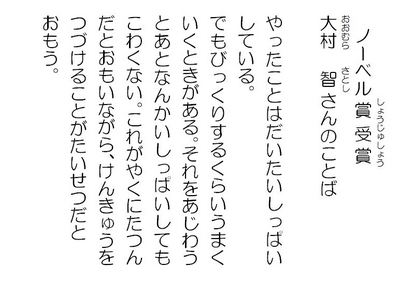 ノーベル賞 受賞
しょうじゅしょう
大村 智さんのことば
おおむら さとし
やったことはだいたいしっぱい
している。
でもびっくりするくらいうまく
いくときがある。それをあじわう
とあとなんかいしっぱいしても
こわくない。これがやくにたつん
だとおもいながら、けんきゅうを
つづけることがたいせつだと
おもう。